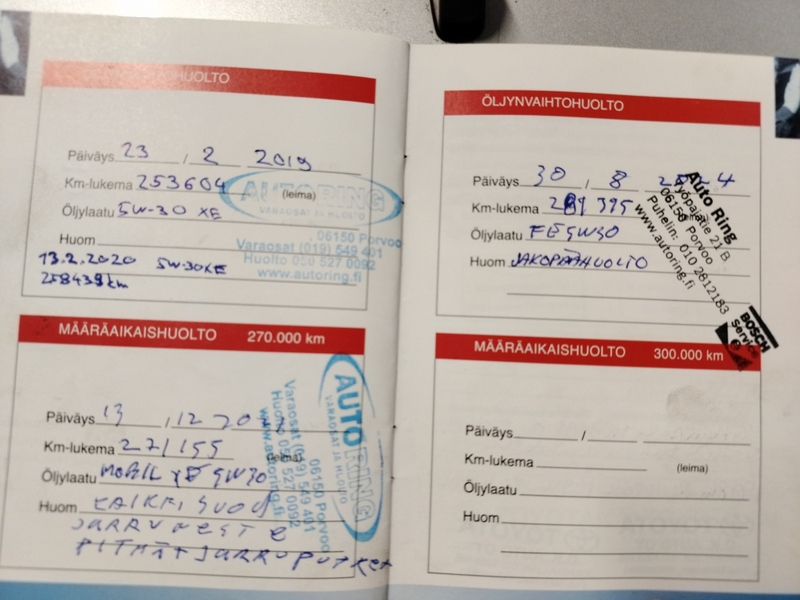 ÖLJYNVAIHTOHUOLTO
Päiväys 23 / 2 2019
Km-lukema 253604 (leima)
Öljylaatu 5W-30 XE
Huom
13.2.2020 5W-30XE
258439km
AUTORING
VARAOSAT JA HUOLTO
06150 Porvoo
Varaosat (019) 549 401
Huolto 050 527 0092
www.autoring.fi
MÄÄRÄAIKAISHUOLTO 270.000 km
Päiväys 13 / 12 20
Km-lukema 271155 (leima)
Öljylaatu MOBIL 5W30
Huom KAIKKI SUOD
JARRUNESTE
PITMÄT JARRUPUTKET
AUTORING
VARAOSAT JA HUOLTO
06150 Porvoo
Varaosat (019) 549 401
Huolto 050 527 0092
www.autoring.fi
ÖLJYNVAIHTOHUOLTO
Päiväys 30 / 8 2024
Km-lukema 289395
Öljylaatu FE5W30
Huom JAKOPÄÄHUOLTO
Auto Ring
Työpajatie 21 B
06150 Porvoo
Puhelin: 010 2812183
www.autoring.fi
BOSCH
Service
MÄÄRÄAIKAISHUOLTO 300.000 km
Päiväys /
Km-lukema (leima)
Öljylaatu
Huom